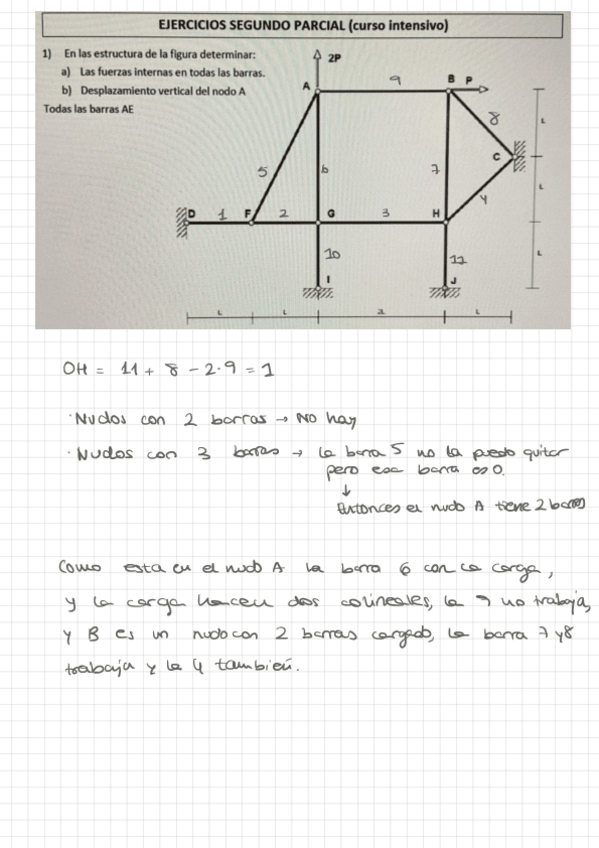 EJERCICIOS SEGUNDO PARCIAL (curso intensivo)
1) En las estructura de la figura determinar:
a) Las fuerzas internas en todas las barras.
b) Desplazamiento vertical del nodo A
Todas las barras AE
2P
A
9
B P
8
L
C
5
6
7
L
4
D 1 F 2 G 3 H
10
11
L
I
J
L L 2L L
OH = 11 + 8 - 2·9 = 1
· Nudos con 2 barras → NO hay
· Nudos con 3 barras → la barra 5 no la puedo quitar
pero esa barra es 0.
↓
Entonces el nudo A tiene 2 barras
Como esta en el nudo A la barra 6 con la carga,
y la carga hacen dos colineales, la 9 no trabaja,
y B es un nudo con 2 barras cargado, la barra 7 y 8
trabaja y la 4 también.